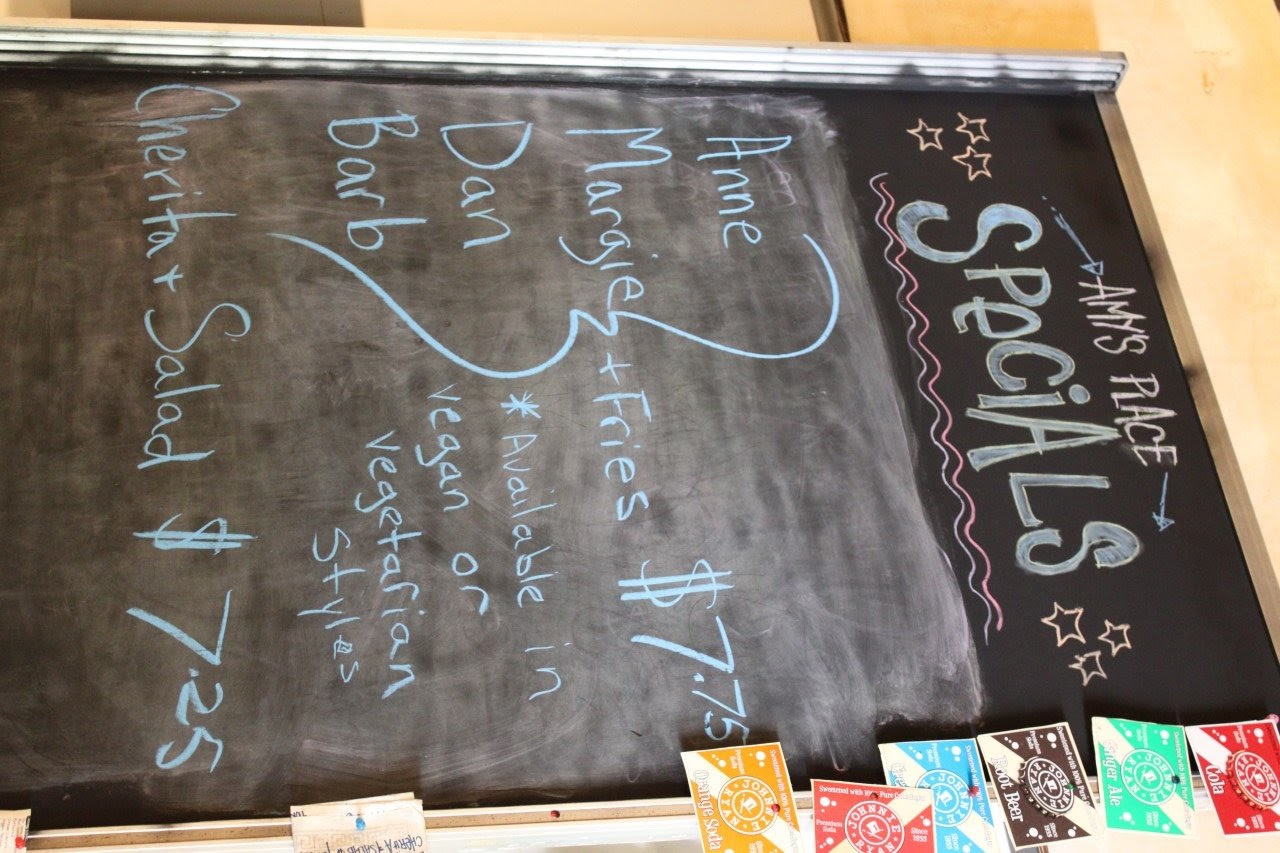 AMY'S PLACE
SPECIALS
Anne
Margie + Fries $7.75
Dan
Barb
*Available in
vegan or
vegetarian
styles
Cherita + Salad $7.25
Cola
Ginger Ale
Root Beer
JOHNNIE RYAN
Since 1935
Orange Soda
JOHNNIE RYAN
Sweetened with 100% Pure Cane Sugar
Premium Soda
JOHNNIE